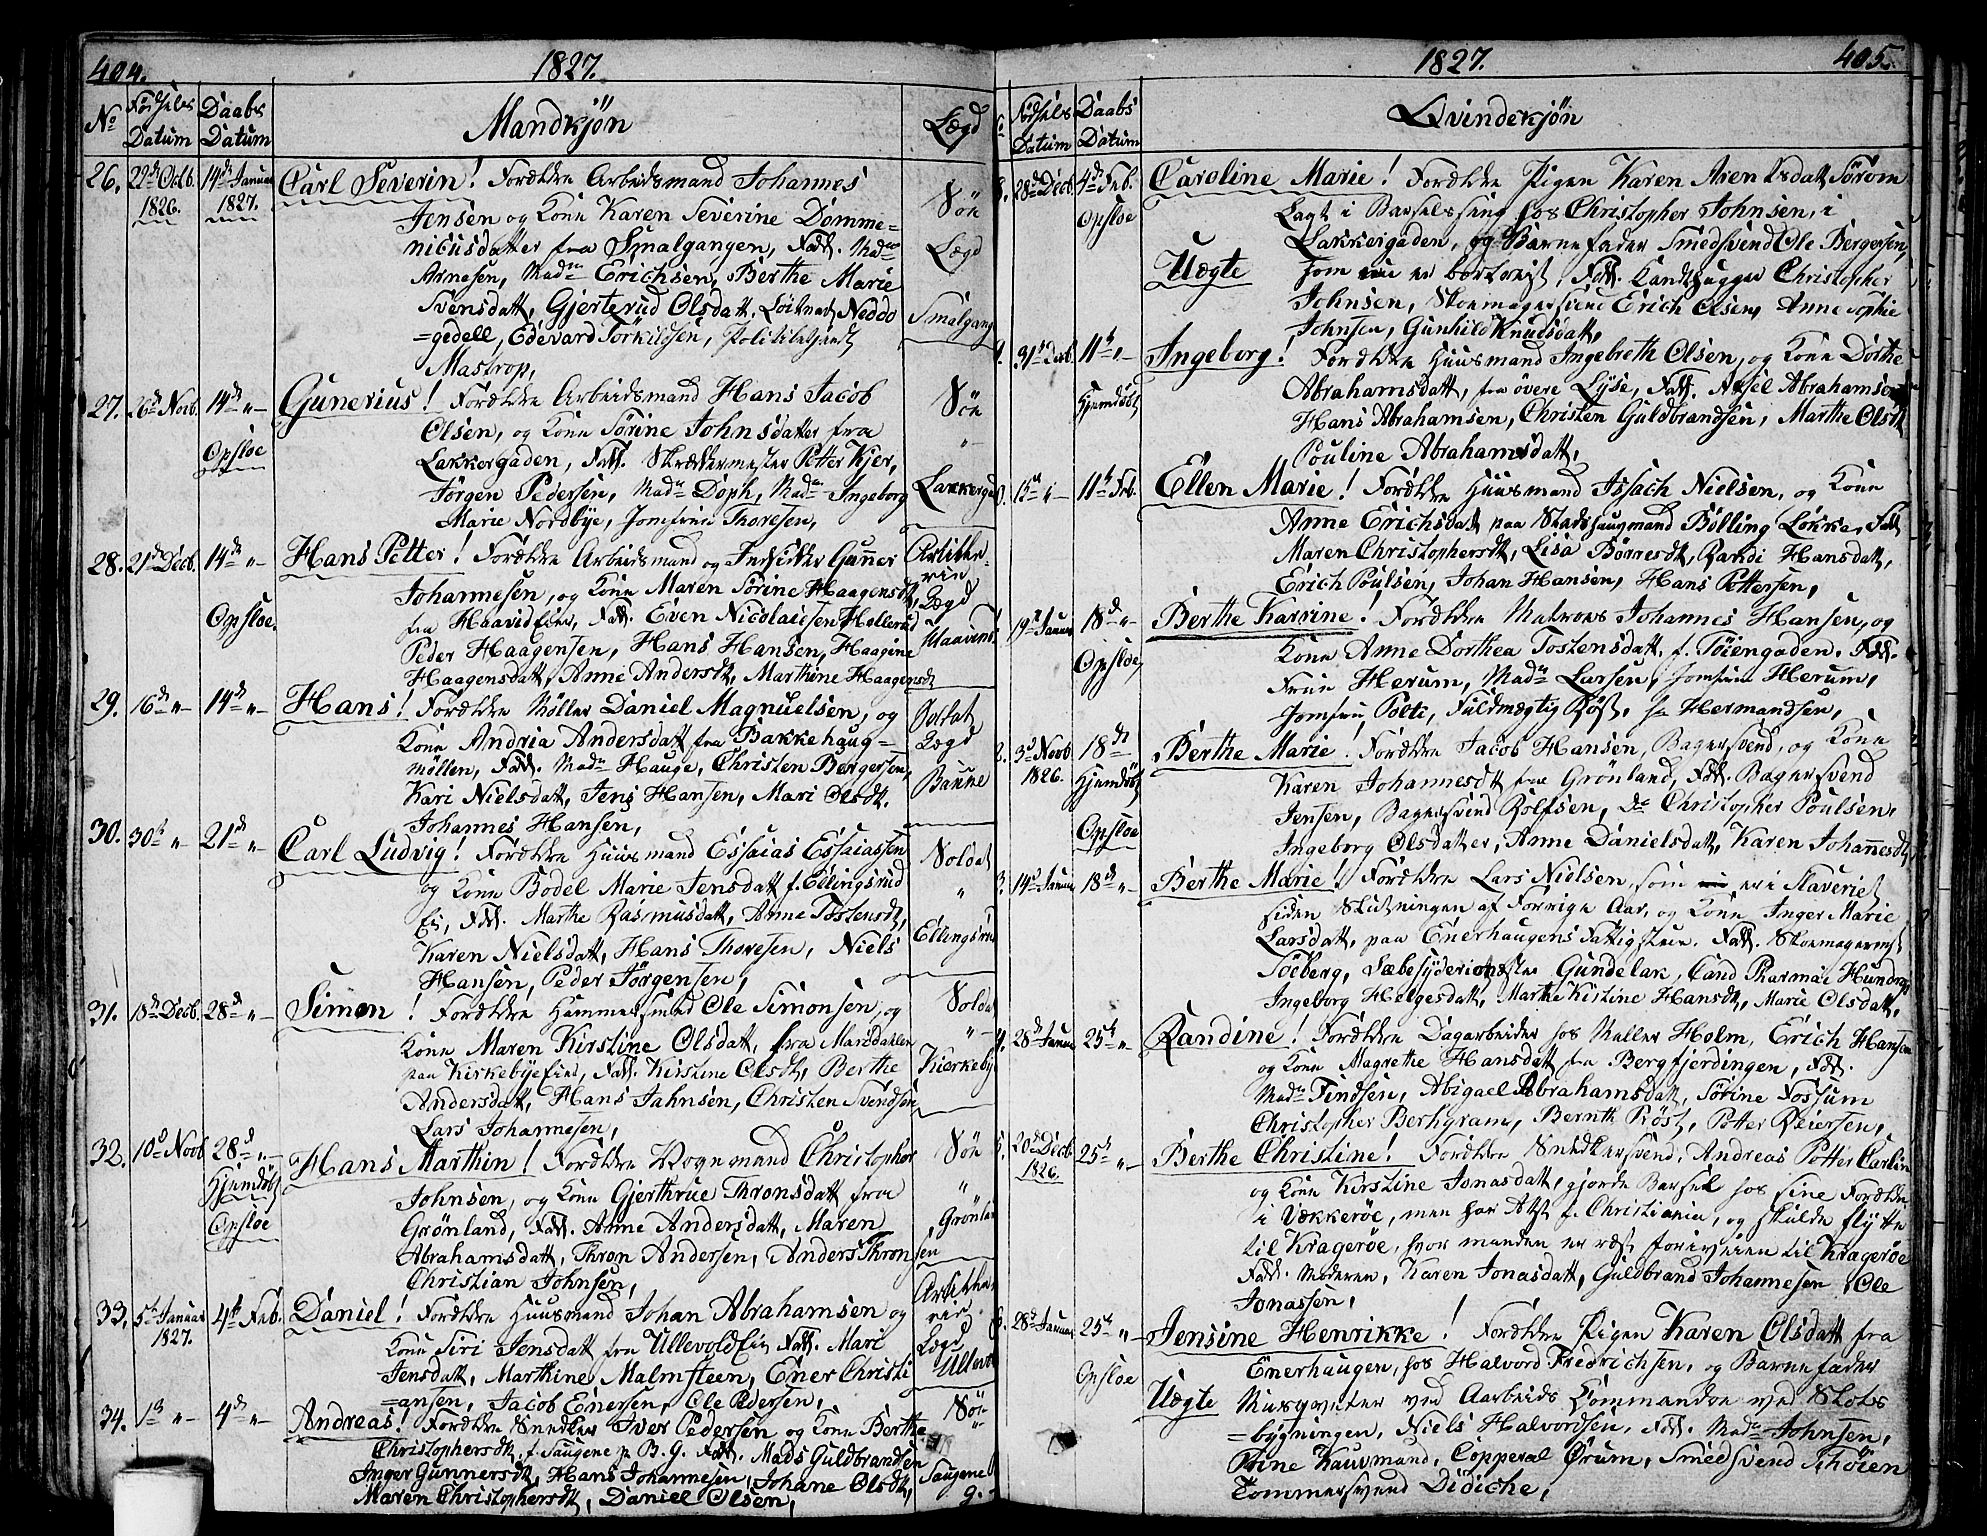 404.
1827.
No
Fødsels Datum
Daabs Datum
Mandkjön
Lægd
26. 22de Octb. 1826. 14de Januar 1827. Carl Severin! Forældre Arbeidsmand Johannes
Jensen og Kone Karen Severine Domme=
nicusdatter fra Smalgangen, Fadd. Madme
Arnesen, Madme Erichsen, Berthe Marie
Svensdatt, Gjerterud Olsdatt, Neddo
=gedell, Edevard Torkildsen, Politibetjent
Mastrop,
Söe
Lægd
Smalgang
27. 26de Novb. 14de "
Opsloe
Gunerius! Forældre Arbeidsmand Hans Jacob
Olsen, og Kone Sörine Johnsdatter fra
Lakkergaden, Fadd. Skræddermester Petter Kjer,
Jörgen Pedersen, Madme Doph, Madme Ingeborg
Marie Nordbye, Jomfrue Thoresen,
Söe
"
Lakkerga
28. 21de Decb. 14de "
Opsloe.
Hans Petter! Forældre Arbeidsmand og Indsidder Gunner
Johannesen, og Kone Maren Sörine Haagensdt,
fra Haavidfien, Fadd. Even Nicolaisen Hellerud
Peder Haagensen, Hans Hansen, Haagine
Haagensdatt, Anne Andersdt, Marthine Haagensdt
Lægd
29. 16de " 14de "
Hans! Forældre Möller Daniel Magnuelsen, og
Kone Andria Andersdatt fra Bakkehaug=
möllen, Fadd. Madme Hauge, Christen Bergersen,
Kari Nielsdatt, Jens Hansen, Mari Olsdt.
Johannes Hansen,
Soldat
Lægd
30. 30te " 21de "
Carl Ludvig! Forældre Huusmand Essaias Essaiassen
og Kone Bodel Marie Jensdatt f. Ellingsrud
Ei, Fadd. Marthe Rasmusdatt, Anne Tostensdt,
Karen Nielsdatt, Hans Thoresen, Niels
Hansen, Peder Jörgensen,
Soldat
"
Ellingsrud
31. 18de Decb. 28de "
Simon! Forældre Hammersmed Ole Simonsen, og
Kone Maren Kirstine Olsdatt, fra Maridahlen
paa Kirkebyefied, Fadd. Kirstine Olsdt, Berthe
Andersdatt, Hans Jahnsen, Christen Svendsen
Lars Johannesen,
Soldat
"
Kierkeby
32. 10de Novb 28de "
Hjemdöbt
Opsloe
Hans Marthin! Forældre Vognmand Christopher
Johnsen, og Kone Gjerthrue Thronsdatt fra
Grönland, Fadd. Anne Andersdatt, Maren
Abrahamsdatt, Thron Andersen, Anders Thronsen
Christian Johnsen,
Söe
"
Grönlan
33. 5te Januar 1827. 4de Feb.
Daniel! Forældre Huusmand Johan Abrahamsen og
Kone Siri Jensdatt fra Ullevold Ei, Fadd. Mari
Jensdatt, Marthine Malmsteen, Ener Christi
=ansen, Jacob Enersen, Ole Pedersen,
Lægd
Ullevo
34. 1ste " 4de "
Andreas! Forældre Snedker Iver Pedersen og Kone Berthe
Christophersdt, f. Saugene p B. G. Fadd. Mads Guldbrandsen
Inger Gunnersdt, Hans Johannesen, Johane Olsdt,
Maren Christophersdt, Daniel Olsen,
Söe
"
Saugene
9.
1827.
405.
Fødsels Datum
Daabs Datum
Qvindekjön
28de Decb. 4de Feb.
Opsloe
Caroline Marie! Forældre Pigen Karen Arentsdatt Sörom
Lagt i Barselseng hos Christopher Johnsen, i
Lakkergaden, og Barnefader Smedsvend Ole Bergersen,
Uægte
som er bortreist, Fadd. Kandthugger Christopher
Johnsen, Skomagersvend Erich Olsen, Anne Sophie
Johnsen, Gunhild Knudsdatt,
31te Decb 11te "
Hjemdöbt
Ingeborg! Forældre Huusmand Ingebreth Olsen, og Kone Dorthe
Abrahamsdatt, fra övere Lyse, Fadd. Axsel Abrahamsen
Hans Abrahamsen, Christen Guldbrandsen, Marthe Olsdt
Pouline Abrahamsdatt,
15de " 11te Feb.
Ellen Marie! Forældre Huusmand Issach Nielsen, og Kone
Anne Erichsdatt paa Stadshaugmand Bölling Lökke, Fadd
Maren Christophersdt, Lisa Börresdt, Randi Hansdatt,
Erich Poulsen, Johan Hansen, Hans Pettersen,
19de Januar 18de "
Opsloe,
Berthe Karrine! Forældre Matros Johannes Hansen, og
Kone Anne Dorthea Tostensdatt, f. Töiengaden. Fadd.
Frue Herum, Madme Larsen, Jomfrue Herum,
Jomfru Polti, Fuldmægtig Röst, Hermandsen,
3de Novb 1826. 18de
Hjemdöbt
Opsloe
Berthe Marie! Forældre Jacob Hansen, Bagersvend, og Kone
Karen Johannesdt fra Grönland, Fadd. Bagersvend
Jensen, Bagersvend Rolfsen, do Christopher Poulsen,
Ingeborg Olsdatter, Anne Danielsdatt, Karen Johannesdt,
14de Januar 18de "
Berthe Marie! Forældre Lars Nielsen, som er i Slaveriet
siden Slutningen af Forrige Aar, og Kone Inger Marie
Larsdatt, paa Enerhaugens Fattigstue. Fadd. Skomagermst
Söeberg, Sæbesyderimester Gundelak, Cand Pharmac Hundrup
Ingeborg Helgesdatt, Marthe Kistine Hansdt, Marie Olsdatt,
28de Januar 25de "
Randine! Forældre Dagarbeider hos Möller Holm, Erich Hansen
og Kone Magrethe Hansdatt fra Bergfjerdingen, Fadd.
Madme Findsen, Abigael Abrahamsdatt, Sörine Fossum
Christopher Berhgram, Bernth Pröst, Petter Reiersen,
20de Decb 1826. 25de "
Berthe Christine! Forældre Snedkersvend, Andreas Petter Carlin
og Kone Kirstine Jonasdatt, gjorde Barsel hos sine Forældre
i Vækkeröe, men har Attst f. Christiania, og skulde flytte
til Krageröe, hvor manden er reist forivejen til Krageröe
Fadd. Moderen, Karen Jonasdatt, Guldbrand Johannesen Ole
Jonassen,
28de Januar 25de "
Opsloe
Jensine Henrikke! Forældre Pigen Karen Olsdatt fra
Enerhaugen, hos Halvord Fredrichsen, og Barnefader
Uægte
Musqveter ved Aarbeids Commandoen ved Slots
=bygningen, Niels Halvordsen, Fadd. Madme Johnsen,
Trine Kauvmand, Copperal Ørum, Smedsvend Thöien
Tommersvend Didiche,